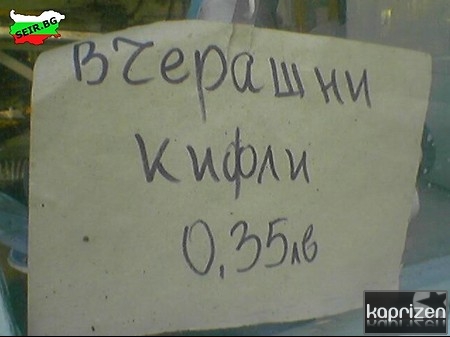 SEIR.BG
вчерашни
кифли
0,35лв
kaprizen